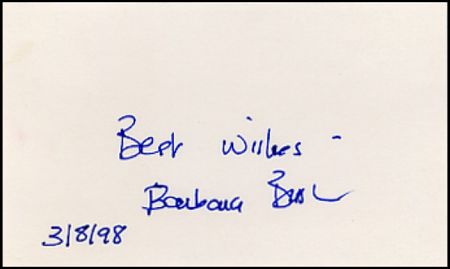 Best Wishes -
Barbara Bush
3/8/98